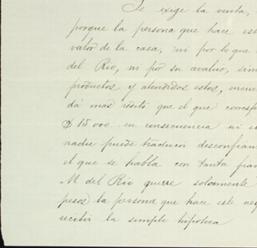 Se exige la venta,
porque la persona que hace este
valor de la casa, ni por lo que
del Rio, ni por su avaluo, sino
productos y atendidos estos, nunca
dá mas rédito que el que corresp
$15.000 en consecuencia ni es
nadie puede traducir desconfian
el que se habla con tanta fran
M del Rio quiere solamente
pesos la persona que hace este neg
recibir la simple hipoteca